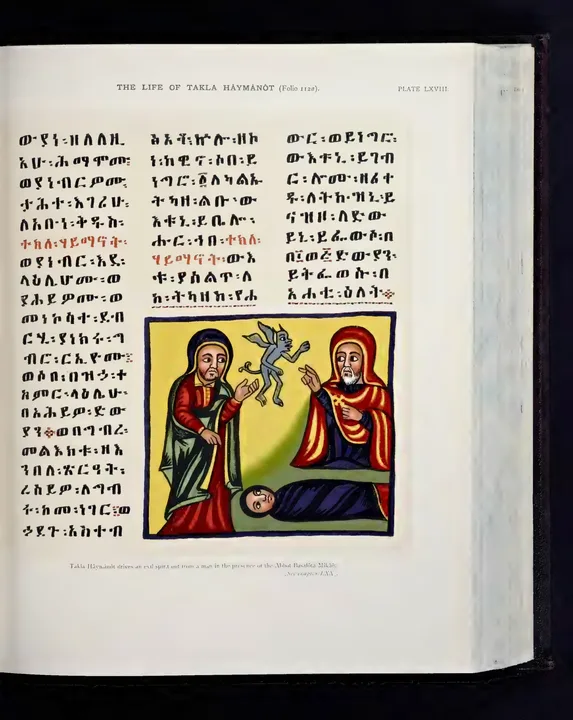 THE LIFE OF TAKLA HÂYMÂNÔT (Folio 112a).
PLATE LXVIII.
ውያነ፡ዘለለዚ
አሁ፡ሕማሞሙ፡
ወያነብርዎሙ፡
ታሕተ፡እገሪሁ፡
ለአቡነ፡ቅዱስ፡
ተክለ፡ሃይማኖት፡
ወያነብር፡እደ፡
ላዕሌሆሙ፡ወ
ያሐይዎሙ፡ወ
መነኮሳተ፡ደብ
ርሂ፡ያነክሩ፡ግ
ብሮ፡ርእዮሙ፡
ወሶበ፡በዝኃ፡ተ
አምር፡ላዕሌሁ፡
በአሕይዎ፡ድው
ያን፡ወበግብረ፡
መልእክቱ፡ዘእ
ንበለ፡ጽርዓት፡
ረሰይዎ፡ለግብ
ሩ፡ከመ፡ነገር፡ወ
ኃደጉ፡አስተብ
ነ፡ከዊኖ፡ሶበ፡ይ
ነግሮ፡፩ለካልኡ
ትካዘ፡ልቡ፡ው
እቱኒ፡ይቤሎ፡
ሑር፡ኀበ፡ተክለ፡
ሃይማኖት፡ውእ
ቱ፡ያሰልጥ፡ለ
ከ፡ትካዘከ፡የሐ
ውር፡ወይነግሮ፡
ውእቱኒ፡ይገብ
ር፡ሎሙ፡ዘፈተ
ዉ፡ለትከ፡ዝኒ፡ይ
ናዝዘ፡ለድው
ይኒ፡ይፌውሶ፡በ
ይትፌወሱ፡በ
አሐቲ፡ዕለት፡
Takla Hâymânôt drives an evil spirit out from a man in the presence of the Abbot
See chapter LXX